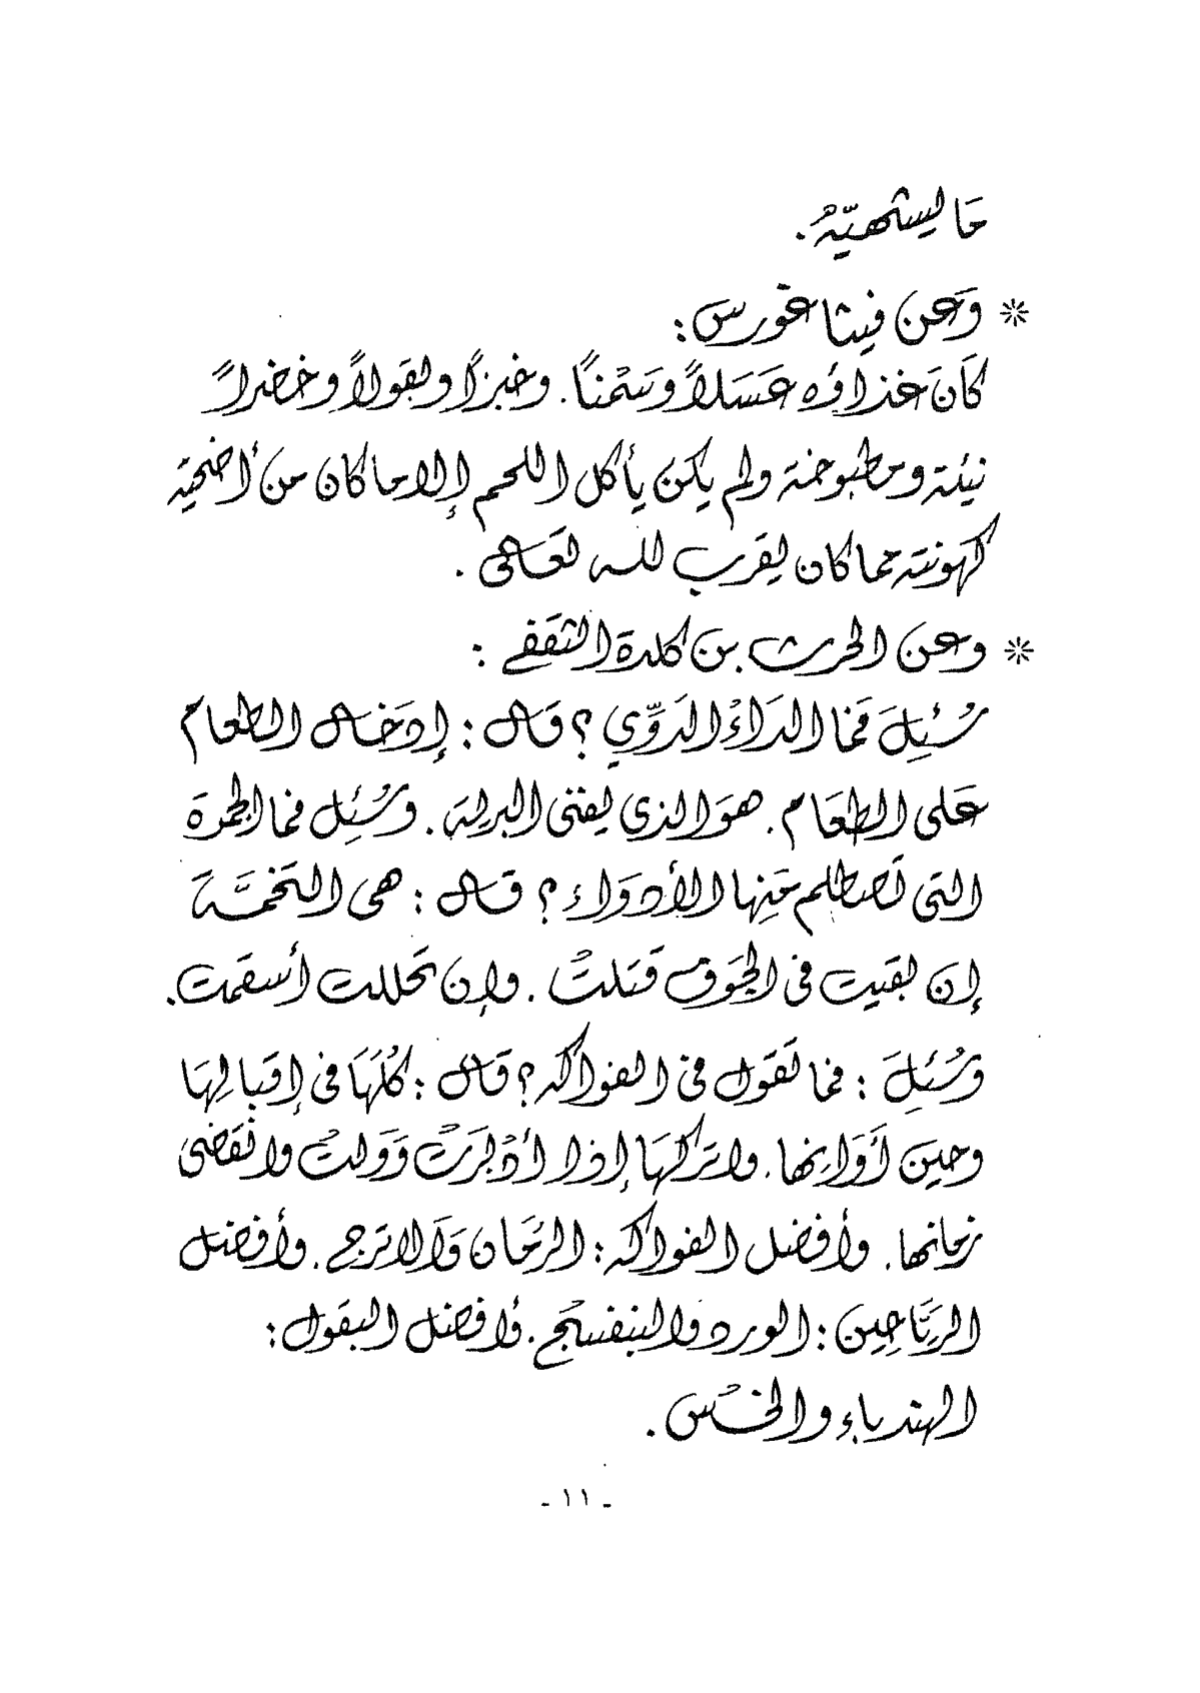 مَا يشتهيّهُ.
* وَعَن فيثاغورس:
كَانَ غذاؤه عَسَلاً وسَمْناً. وخبزاً وبقولاً وخضراً
نيئة ومطبوخة ولم يكن يأكل اللحم إلا ما كان من أضحية
كهونته مما كان يقرب لله تعَالى.
* وعن الحرث بن كلدة الثقفي:
سُئِلَ فَمَا الدَاءُ الدَوِّي؟ قَال: إدخَال الطعام
على الطعَام. هوَ الذي يفني البرية. وسُئِل فما الجمرة
التي تَصطلم مَنها الأدوَاء؟ قَال: هي التخمَة
إن بقيت في الجَوف قَتلتْ. وإن تحللت أسقمت.
وَسُئلَ: فما تقول في الفواكه؟ قَال: كُلهَا في إقبالِهَا
وحينَ أَوَانِها. واتركهَا إذا أدْبرَتْ وَوَلتْ وانقَضى
زمانها. وأفضل الفواكه: الرمَان وَالاترج. وأفضل
الريَاحِين: الورد والبنفسْج. وأفضل البقول:
الهندباء والخسْ.
- ١١ -